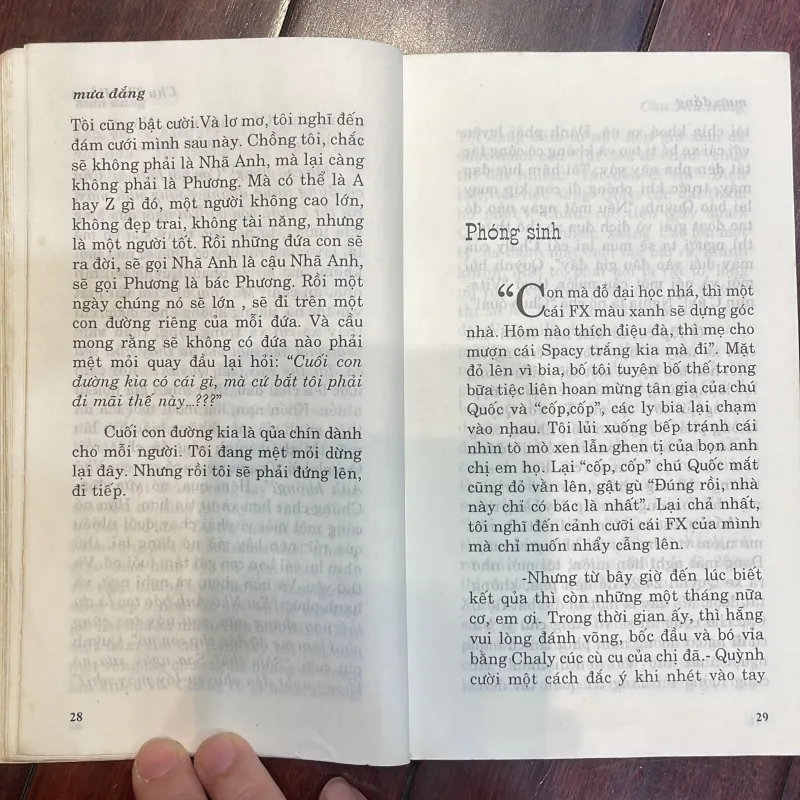 mưa đắng
Tôi cũng bật cười.Và lơ mơ, tôi nghĩ đến
đám cưới mình sau này. Chồng tôi, chắc
sẽ không phải là Nhã Anh, mà lại càng
không phải là Phương. Mà có thể là A
hay Z gì đó, một người không cao lớn,
không đẹp trai, không tài năng, nhưng
là một người tốt. Rồi những đứa con sẽ
ra đời, sẽ gọi Nhã Anh là cậu Nhã Anh,
sẽ gọi Phương là bác Phương. Rồi một
ngày chúng nó sẽ lớn , sẽ đi trên một
con đường riêng của mỗi đứa. Và cầu
mong rằng sẽ không có đứa nào phải
mệt mỏi quay đầu lại hỏi: “Cuối con
đường kia có cái gì, mà cứ bắt tôi phải
đi mãi thế này...???”
Cuối con đường kia là qủa chín dành
cho mỗi người. Tôi đang mệt mỏi dừng
lại đây. Nhưng rồi tôi sẽ phải đứng lên,
đi tiếp.
28
Phóng sinh
“Con mà đỗ đại học nhá, thì một
cái FX màu xanh sẽ dựng góc
nhà. Hôm nào thích điệu đà, thì mẹ cho
mượn cái Spacy trắng kia mà đi”. Mặt
đỏ lên vì bia, bố tôi tuyên bố thế trong
bữa tiệc liên hoan mừng tân gia của chú
Quốc và “cốp,cốp”, các ly bia lại chạm
vào nhau. Tôi lủi xuống bếp tránh cái
nhìn tò mò xen lẫn ghen tị của bọn anh
chị em họ. Lại “cốp, cốp” chú Quốc mắt
cũng đỏ vằn lên, gật gù “Đúng rồi, nhà
này chỉ có bác là nhất”. Lại chả nhất,
tôi nghĩ đến cảnh cưỡi cái FX của mình
mà chỉ muốn nhẩy cẫng lên.
-Nhưng từ bây giờ đến lúc biết
kết qủa thì còn những một tháng nữa
cơ, em ơi. Trong thời gian ấy, thì hẵng
vui lòng đánh võng, bốc đầu và bó vỉa
bằng Chaly cúc cù cu của chị đã.- Quỳnh
cười một cách đắc ý khi nhét vào tay
29